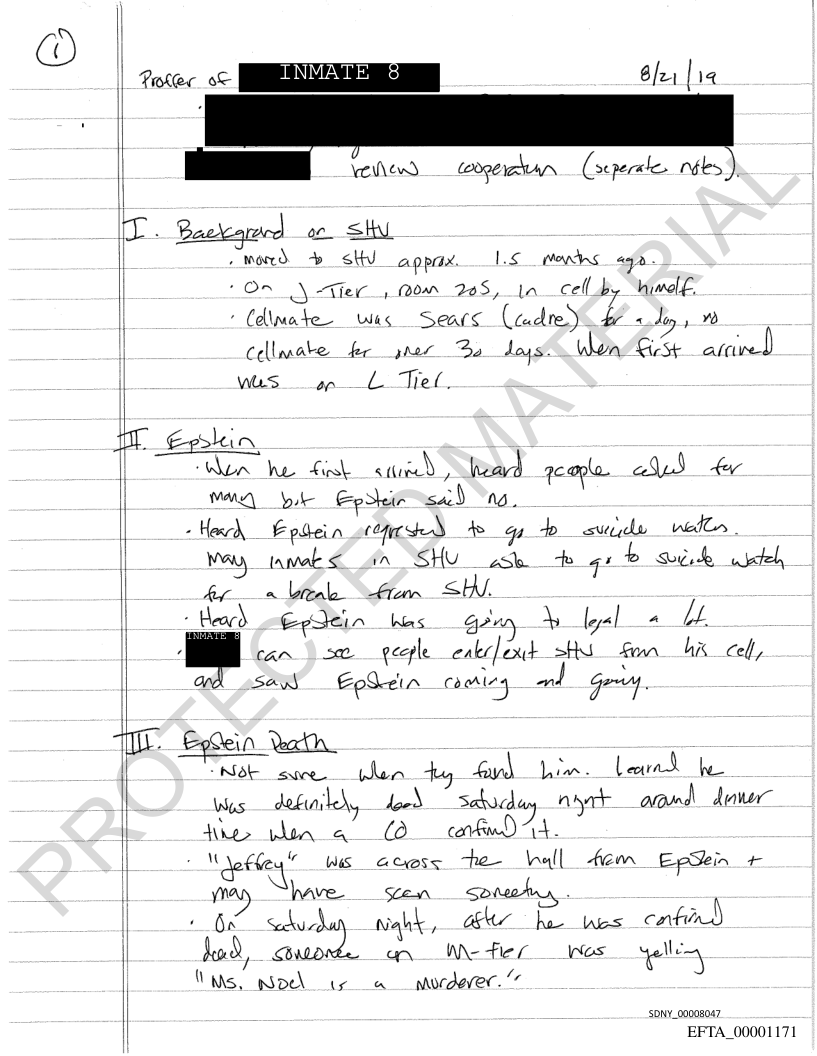 (1)
Proffer of INMATE 8 8/21/19
review cooperation (seperate notes).
I. Background on SHU
· moved to SHU approx. 1.5 months ago.
· On J-Tier, room 205, in cell by himself.
· Cellmate was Sears (cadre) for a day, no
cellmate for over 30 days. When first arrived
was on L Tier.
II. Epstein
· When he first arrived, heard people asked for
money but Epstein said no.
· Heard Epstein requested to go to suicide watch.
Many inmates in SHU ask to go to suicide watch
for a break from SHU.
· Heard Epstein was going to legal a lot.
· INMATE 8 can see people enter/exit SHU from his cell,
and saw Epstein coming and going.
III. Epstein Death
· Not sure when they found him. Learned he
was definitely dead Saturday night around dinner
time when a CO confirmed it.
· "Jeffrey" was across the hall from Epstein +
may have seen something.
· On Saturday night, after he was confirmed
dead, someone on M-tier was yelling
"Ms. Noel is a murderer."
PROTECTED MATERIAL
SDNY_00008047
EFTA_00001171